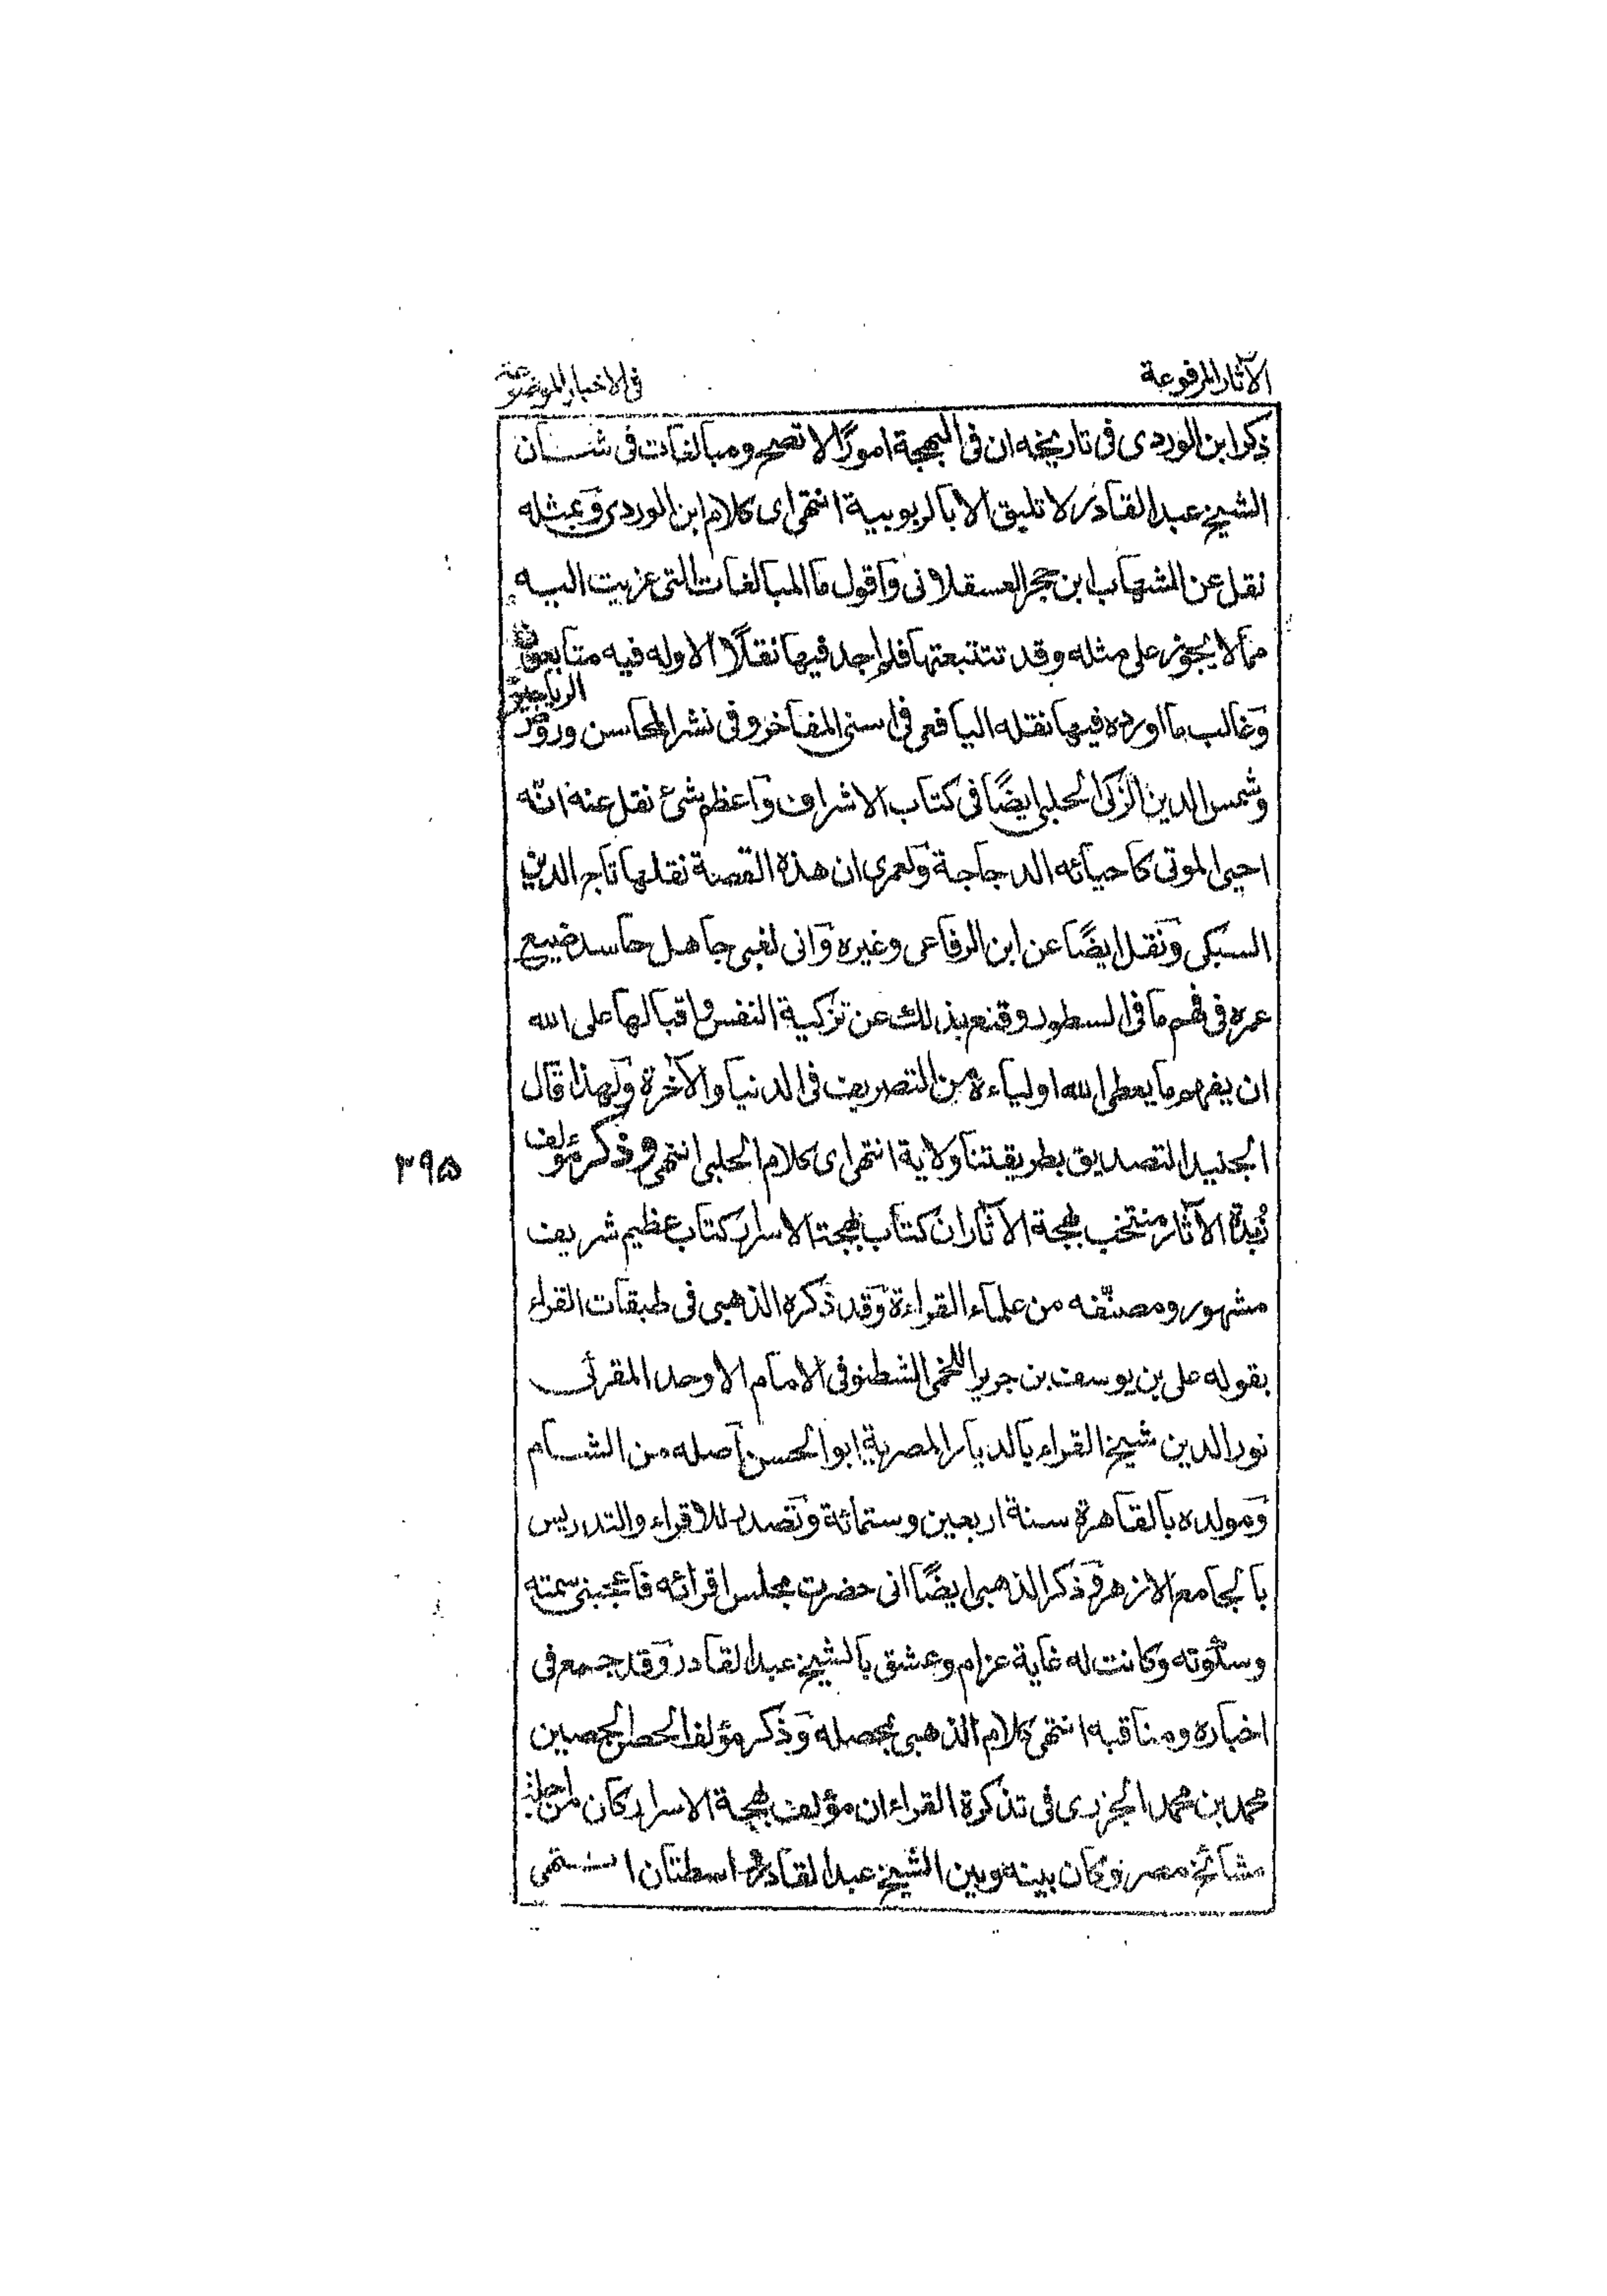 الآثار المرفوعة
فى الاخبار الموضوعة
ذكر ابن الوردى فى تاريخه ان فى البهجة امورًا لا تصح ومبالغات فى شان
الشيخ عبد القادر لا تليق الا بالربوبية انتهى اى كلام ابن الوردى وبمثله
نقل عن الشهاب ابن حجر العسقلانى واقول ما المبالغات التى عزيت اليه
مما لا يجوز على مثله وقد تتبعتها فلم اجد فيها نقلًا الا وله فيه متابعون
وغالب ما اورده فيها نقله اليافعى فى اسنى المفاخر وفى نشر المحاسن وروض الرياحين
وشمس الدين الزكى الحلبى ايضًا فى كتاب الاشراف واعظم شئ نقل عنه انّه
احيى الموتى كاحيائه الدجاجة ولعمرى ان هذه القصة نقلها تاج الدين
السبكى ونقل ايضًا عن ابن الرفاعى وغيره وانى لغبى جاهل حاسد ضييع
عمره فى فهم ما فى السطور وقنع بذلك عن تزكية النفس واقبالها على الله
ان يفهم ما يعطى الله اولياءه من التصريف فى الدنيا والآخرة ولهذا قال
الجنيد التصديق بطريقتنا ولاية انتهى اى كلام الحلبى انتهى وذكر مؤلف
زبدة الآثار منتخب بهجة الآثار ان كتاب بهجة الاسرار كتاب عظيم شريف
مشهور ومصنّفه من علماء القراءة وقد ذكره الذهبى فى طبقات القراء
بقوله على بن يوسف بن جرير اللخمى الشطنوفى الامام الاوحد المقرئ
نور الدين شيخ القراء بالديار المصرية ابو الحسن اصله من الشام
ومولده بالقاهرة سنة اربعين وستمائة وتصدر للاقراء والتدريس
بالجامع الازهر وذكر الذهبى ايضًا انى حضرت مجلس اقرائه فاعجبنى سمته
وسكوته وكانت له غاية عزام وعشق بالشيخ عبد القادر وقد جمع فى
اخباره ومناقبه انتهى كلام الذهبى بمحصله وذكر مؤلف الحصن الحصين
محمد بن محمد الجزرى فى تذكرة القراء ان مؤلف بهجة الاسرار كان من اجلة
مشائخ مصر وكان بينه وبين الشيخ عبد القادر واسطتان انتهى
٣٩٥